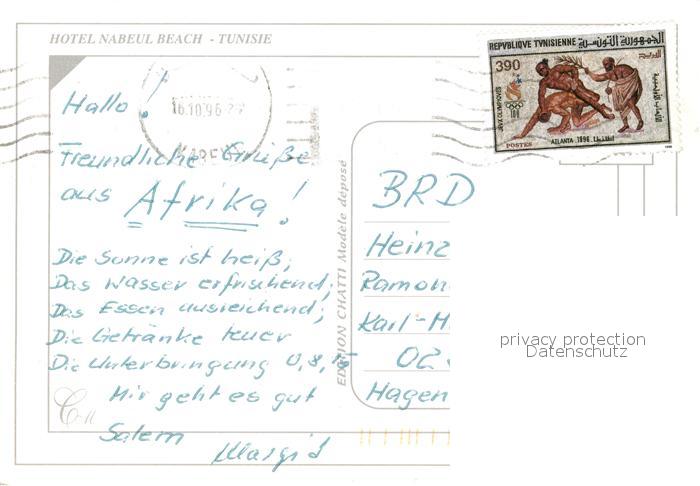 HOTEL NABEUL BEACH - TUNISIE
Hallo!
16.10.96
Freundliche Grüße
aus Afrika!
Die Sonne ist heiß;
Das Wasser erfrischend;
Das Essen ausreichend;
Die Getränke teuer
Die Unterbringung 0,8,15
Mir geht es gut
Salem Margid
EDITION CHATTI Modèle déposé
REPVBLIQVE TVNISIENNE الجمهورية التونسية
390
JEUX OLYMPIQUES
100
POSTES
ATLANTA 1996 أطلنطا
BRD
Heinz
Ramon
Karl-H
02
Hagen
privacy protection
Datenschutz